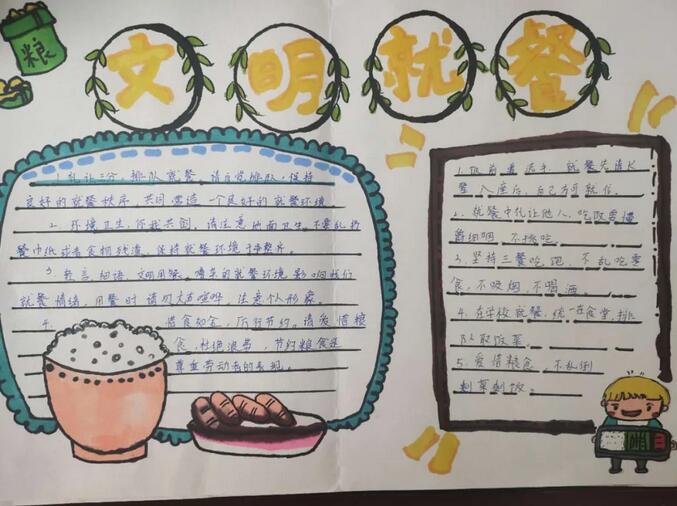 粮
文明就餐
1.礼让三分,排队就餐。请自觉排队,保持
良好的就餐秩序,共同营造一个良好的就餐环境。
2.环境卫生,你我共创,请注意地面卫生,不要乱扔
餐巾纸或者食物残渣,保持就餐环境干净整齐。
3.轻言细语,文明用餐。嘈杂的就餐环境影响我们
就餐情绪,用餐时请勿大声喧哗,注意个人形象。
4.惜食如金,厉行节约。请爱惜粮
食,杜绝浪费,节约粮食是
尊重劳动者的表现。
1.饭前要洗手,就餐先请长
辈入座后,自己方可就位。
2.就餐中礼让他人,吃饭要慢
嚼细咽,不挑吃。
3.坚持三餐吃饱,不乱吃零
食,不吸烟,不喝酒
4.在学校就餐,统一在食堂,排
队取饭菜。
5.爱惜粮食,不乱倒
剩菜剩饭。